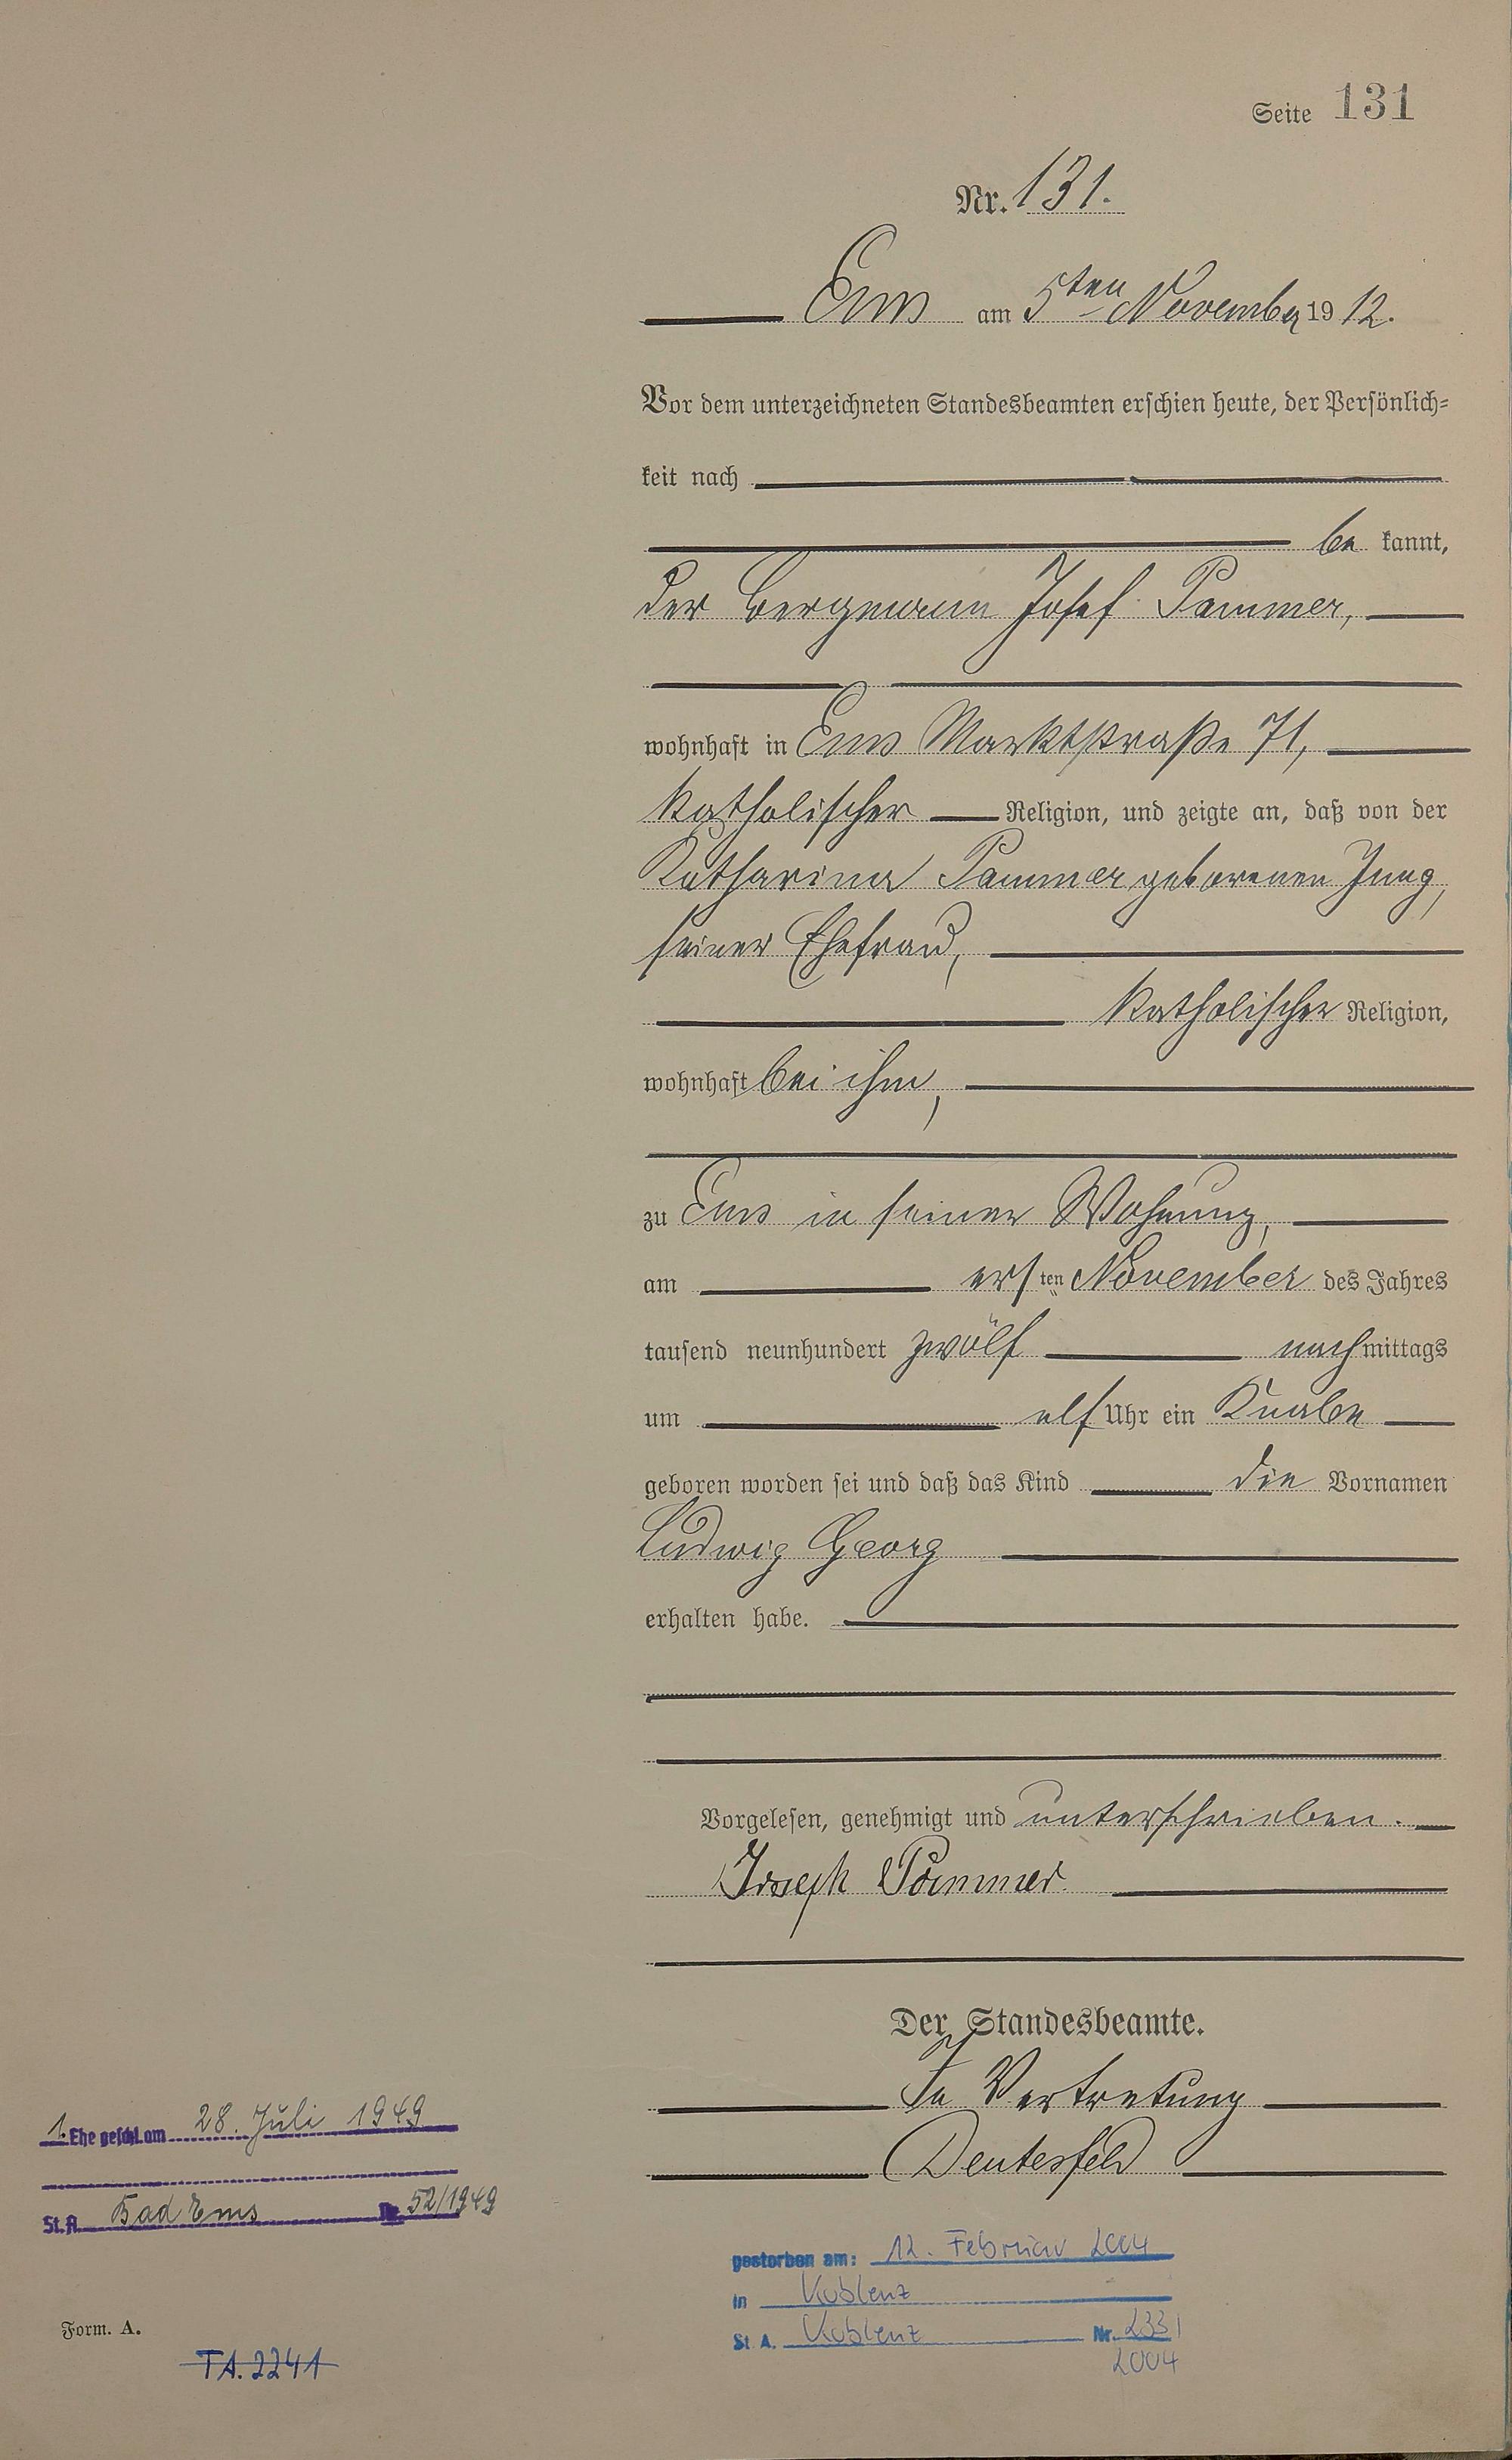 Seite 131
Nr. 131.
Ems am 5ten November 1912.
Vor dem unterzeichneten Standesbeamten erschien heute, der Persönlich=
keit nach
be kannt,
der Bergmann Josef Pammer,
wohnhaft in Ems Marktstraße 71,
katholischer Religion, und zeigte an, daß von der
Katharina Pammer geborenen Jung,
seiner Ehefrau,
katholischer Religion,
wohnhaft bei ihm,
zu Ems in seiner Wohnung,
am ersten November des Jahres
tausend neunhundert zwölf nachmittags
um elf Uhr ein Knabe
geboren worden sei und daß das Kind die Vornamen
Ludwig Georg
erhalten habe.
Vorgelesen, genehmigt und unterschrieben.
Joseph Pammer
Der Standesbeamte.
In Vertretung
Deutesfeld
1. Ehe geschl. am 28. Juli 1949
St. A. Bad Ems Nr. 52/1949
gestorben am: 12. Februar 2004
in Koblenz
St. A. Koblenz Nr. 233/
2004
Form. A.
TA. 2241